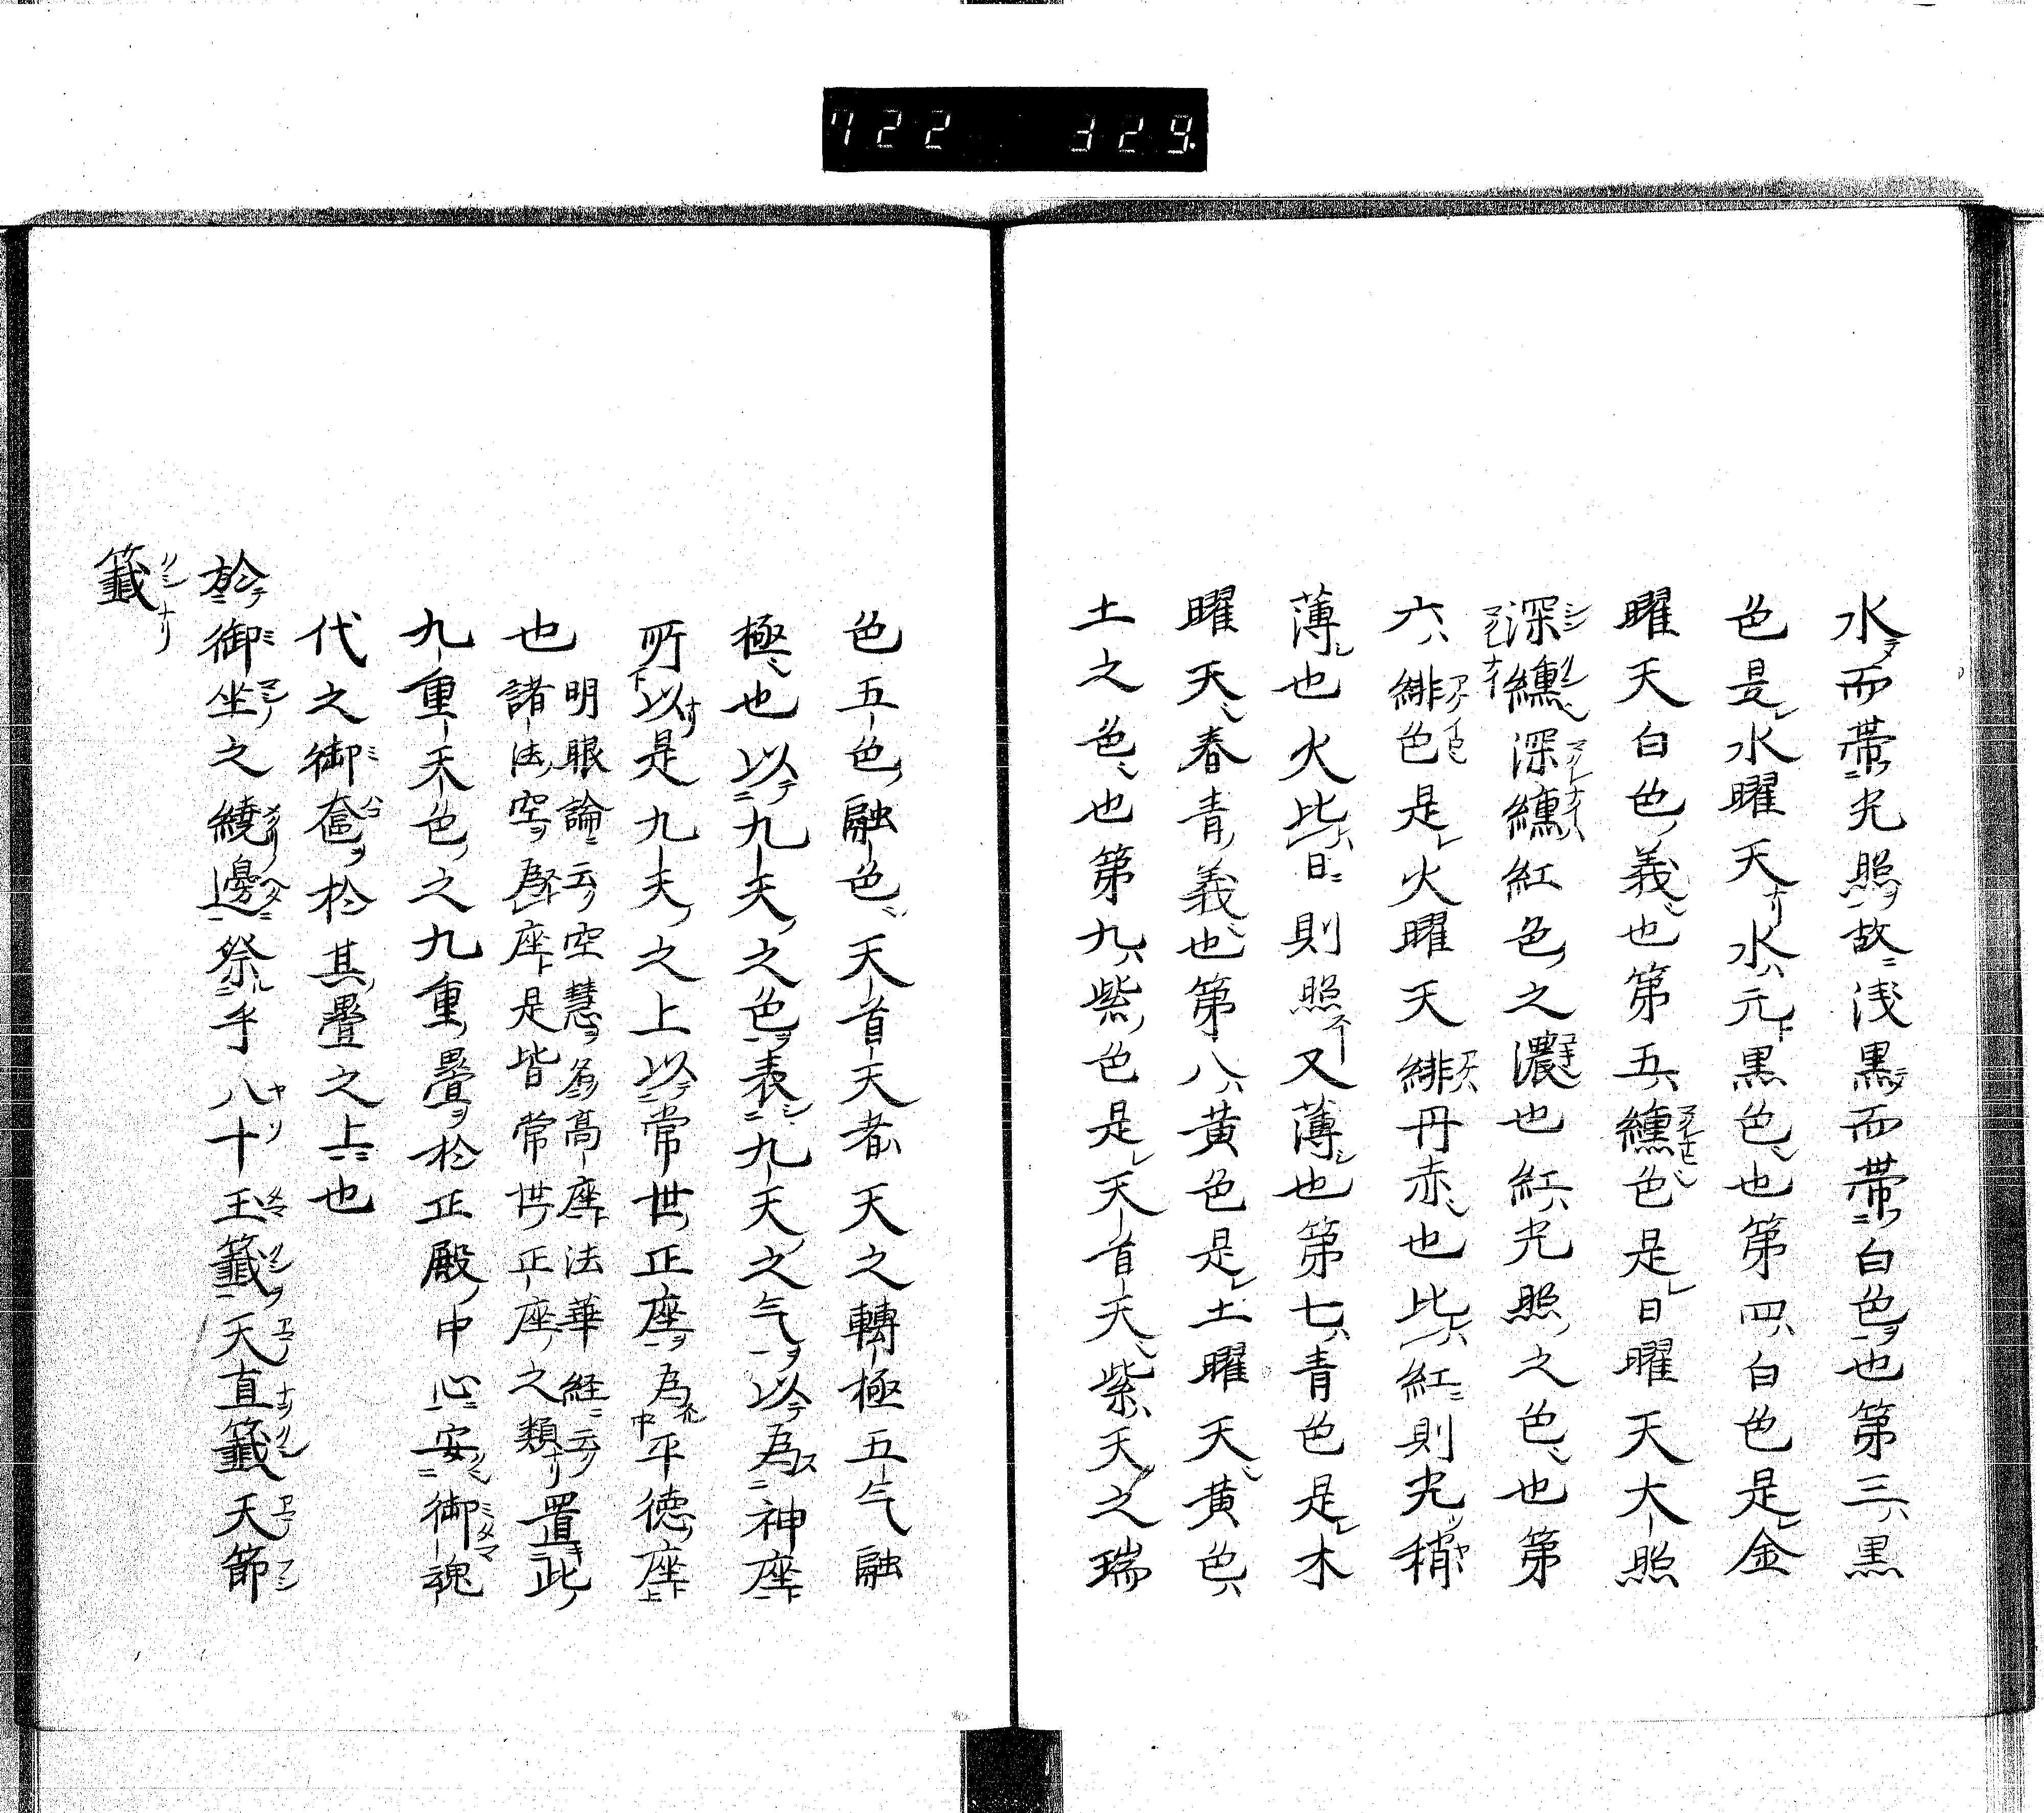 722 329.
水而帯光照故浅黒而帯白色也第三黒
色是水曜天水元黒色也第四白色是金
曜天白色義也第五纁色是日曜天大照
深纁深纁紅色之濃也紅光照之色也第
六緋色是火曜天緋丹赤也比紅則光稍
薄也火比日則照又薄也第七青色是木
曜天春青義也第八黄色是土曜天黄色
土之色也第九紫色是天首天紫天之瑞
色五色融色天首天者天之轉極五气融
極也以九夫之色表九天之气以為神座
所以是九夫之上以常世正座為平德座
也明眼論云空慧為高座法華経云
諸法空為座是皆常世正座之類置此
九重夫色之九重畳於正殿中心安御魂
代之御奩於其畳之上也
於御坐之繞邊祭乎八十王籤天直籤天節
籤